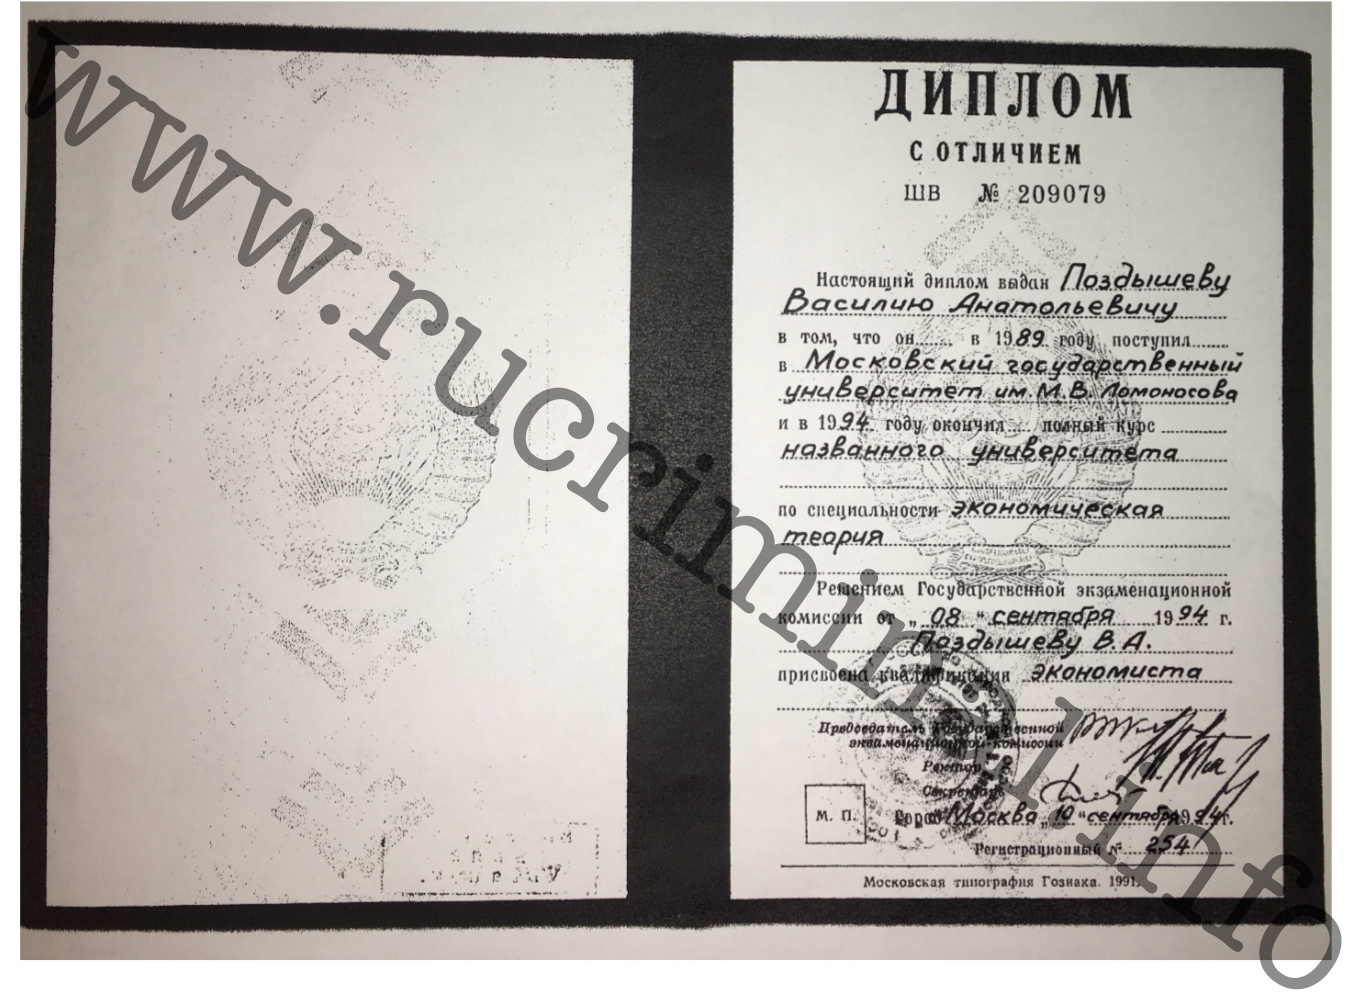 www.rucriminal.info
ДИПЛОМ
С ОТЛИЧИЕМ
ШВ № 209079
Настоящий диплом выдан Поздышеву
Василию Анатольевичу
в том, что он в 1989 году поступил
в Московский государственный
университет им. М.В. Ломоносова
и в 1994 году окончил полный курс
названного университета
по специальности экономическая
теория
Решением Государственной экзаменационной
комиссии от „08“ сентября 1994 г.
Поздышеву В.А.
присвоена квалификация экономиста
Председатель Государственной
экзаменационной комиссии
Ректор
Секретарь
М. П.
Город Москва „10“ сентября 1994 г.
Регистрационный № 254
Московская типография Гознака. 1991.